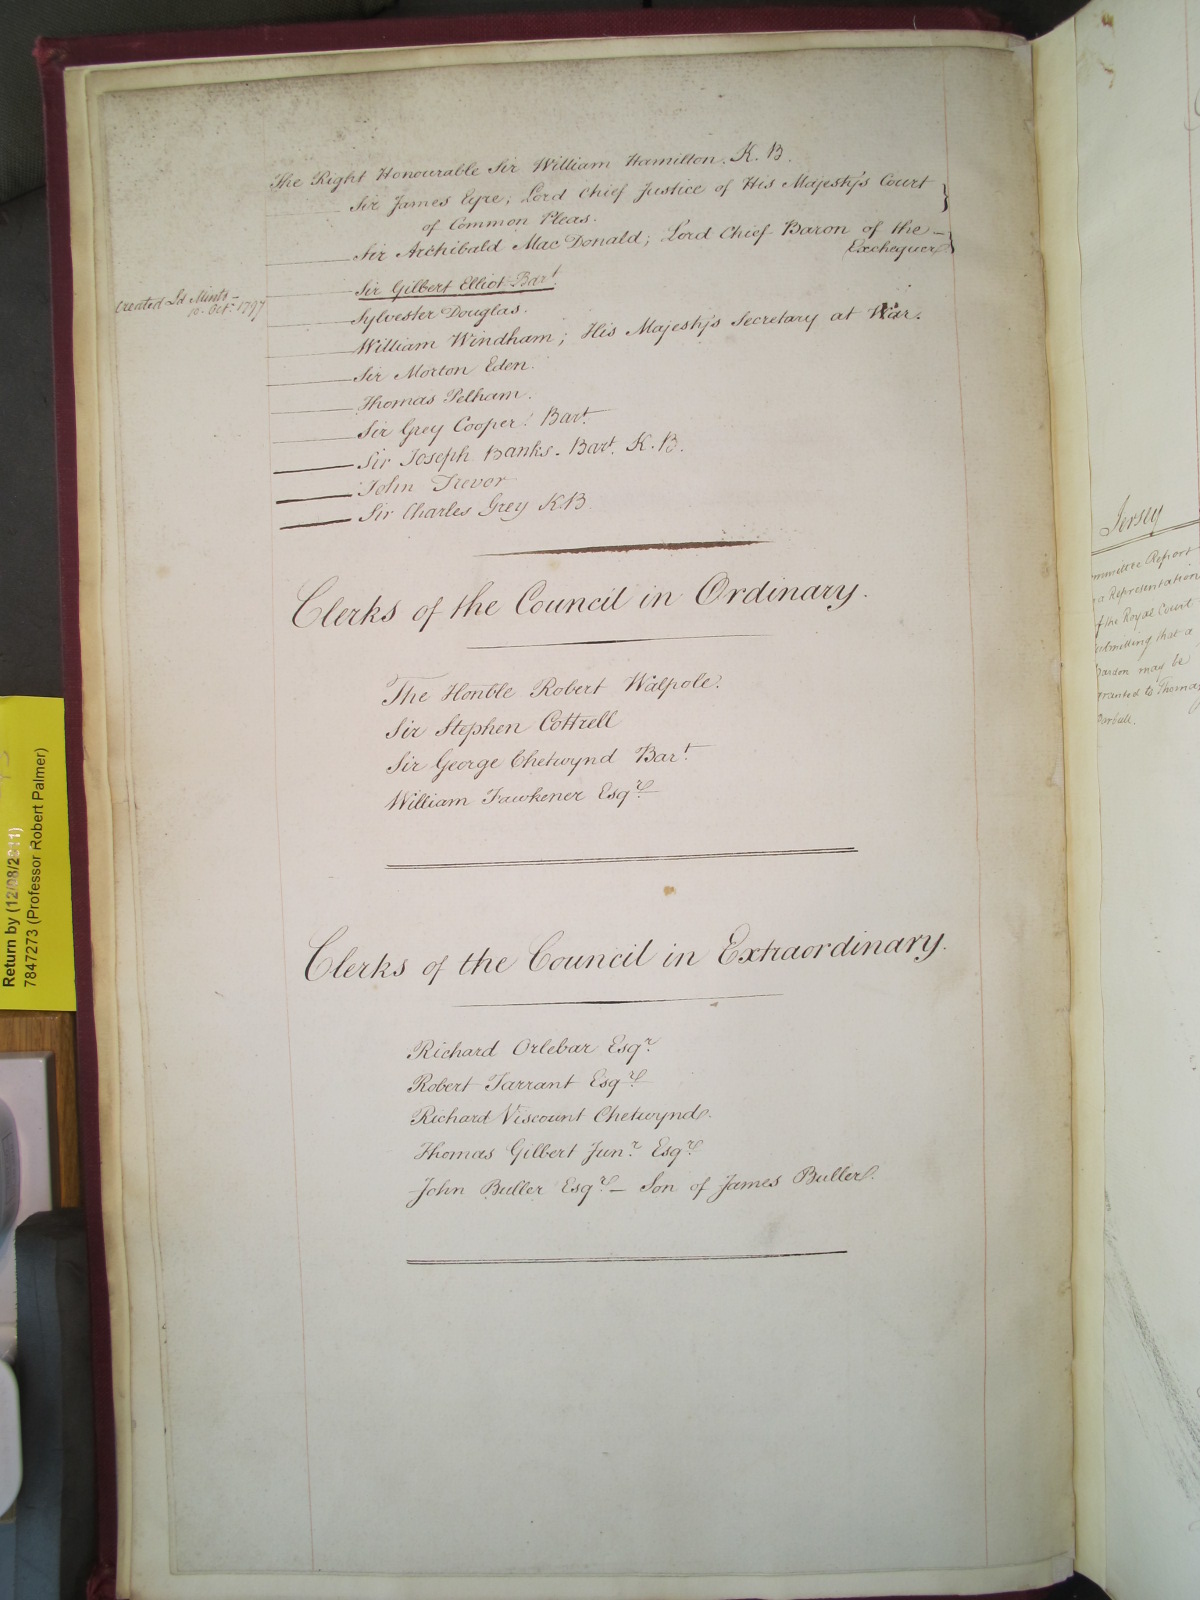 The Right Honourable Sir William Hamilton. K. B.
Sir James Eyre; Lord Chief Justice of His Majesty's Court
of Common Pleas.
Sir Archibald Mac Donald; Lord Chief Baron of the
Exchequer
Sir Gilbert Elliot Bart
Created Ld Minto
10. Oct. 1797
Sylvester Douglas.
William Windham; His Majesty's Secretary at War.
Sir Morton Eden.
Thomas Pelham.
Sir Grey Cooper. Bart.
Sir Joseph Banks. Bart. K. B.
John Trevor
Sir Charles Grey K.B
Clerks of the Council in Ordinary.
The Honble Robert Walpole.
Sir Stephen Cottrell
Sir George Chetwynd Bart.
William Fawkener Esqr.
Clerks of the Council in Extraordinary.
Richard Orlebar Esqr.
Robert Tarrant Esqr.
Richard Viscount Chetwynd.
Thomas Gilbert Junr. Esqr.
John Buller Esqr. – Son of James Buller.
Return by (12/08/2011)
7847273 (Professor Robert Palmer)
Jersey
mmittee Report
a Representation
of the Royal Court
submitting that a
pardon may be
granted to Thomas